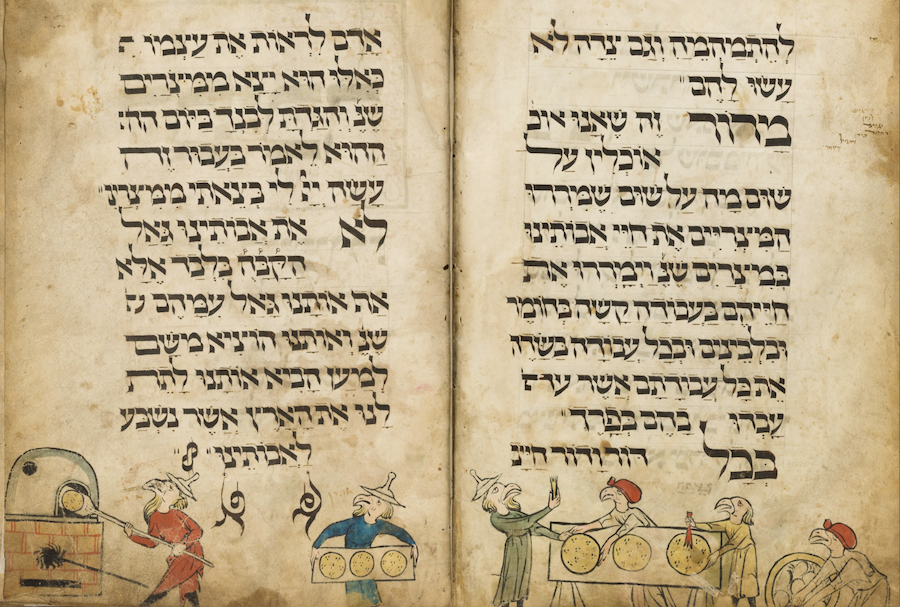 להתמהמה וגם צדה לא
עשו להם
מרור זה שאנו אוכ
אוכלין על
שום מה על שום שמררו
המצריים את חיי אבותינו
במצרים שנ' וימררו את
חייהם בעבודה קשה בחומר
ובלבינים ובכל עבודה בשדה
את כל עבודתם אשר
עבדו בהם בפרך
בכל דור ודור חייב
אדם לראות את עצמו
כאלו הוא יצא ממצרים
שנ' והגדת לבנך ביום הה
ההוא לאמר בעבור זה
עשה יי לי בצאתי ממצרים
לא את אבותינו גאל
הקבה בלבד אלא
אף אותנו גאל עמהם
שנ' ואותנו הוציא משם
למען הביא אותנו לתת
לנו את הארץ אשר נשבע
לאבותינו